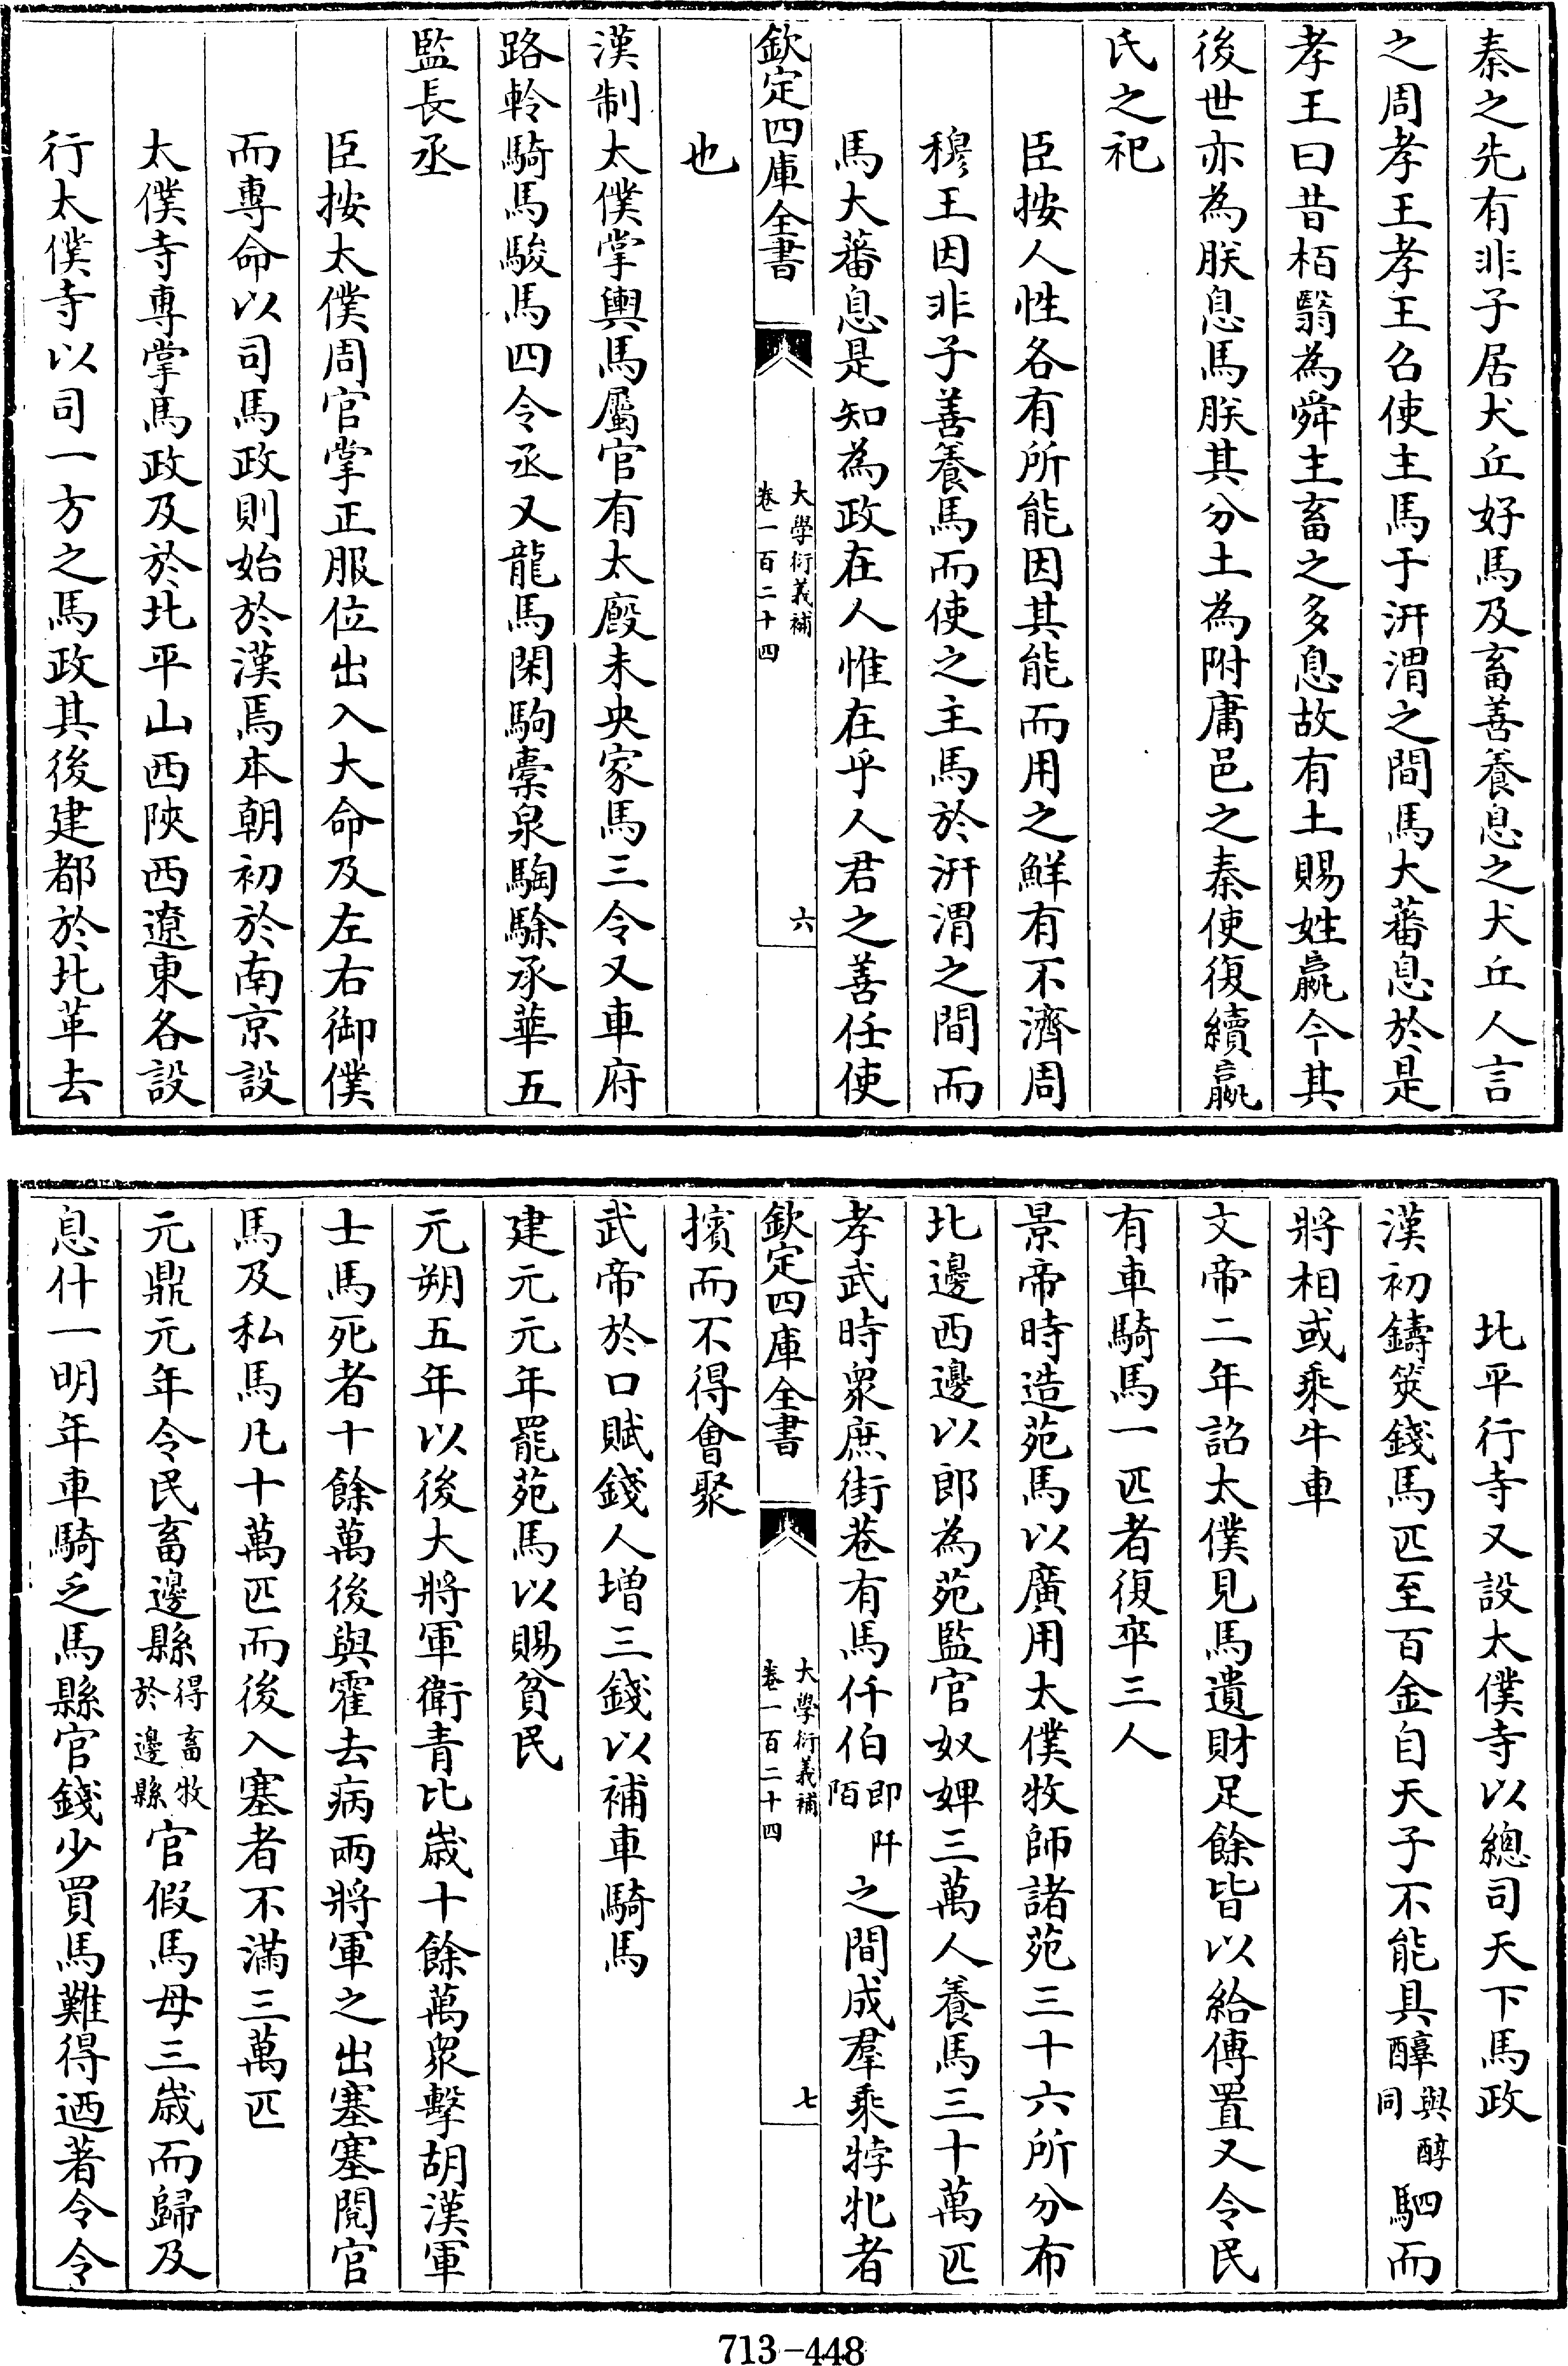 秦之先有非子居犬丘好馬及畜善養息之犬丘人言
之周孝王孝王召使主馬于汧渭之間馬大蕃息於是
孝王曰昔栢翳為舜主畜畜之多息故有土賜姓嬴今其
後世亦為朕息馬朕其分土為附庸邑之秦使復續嬴
氏之祀
臣按人性各有所能因其能而用之鮮有不濟周
穆王因非子善養馬而使之主馬於汧渭之間而
馬大蕃息是知為政在人惟在乎人君之善任使
欽定四庫全書
大學衍義補
卷一百二十四
六
也
漢制太僕掌輿馬屬官有太廄未央家馬三令又車府
路軨騎馬駿馬四令丞又龍馬閑駒橐泉騊駼承華五
監長丞
臣按太僕周官掌正服位出入大命及左右御僕
而專命以司馬政則始於漢焉本朝初於南京設
太僕寺專掌馬政及於北平山西陜西遼東各設
行太僕寺以司一方之馬政其後建都於北革去
北平行寺又設太僕寺以總司天下馬政
漢初鑄筴錢馬匹至百金自天子不能具醇與醇同駟而
將相或乘牛車
文帝二年詔太僕見馬遺財足餘皆以給傳置又令民
有車騎馬一匹者復卒三人
景帝時造苑馬以廣用太僕牧師諸苑三十六所分布
北邊西邊以郎為苑監官奴婢三萬人養馬三十萬匹
孝武時衆庶街巷有馬仟伯即阡陌之間成羣乘牸牝者
欽定四庫全書
大學衍義補
卷一百二十四
七
擯而不得會聚
武帝於口賦錢人增三錢以補車騎馬
建元元年罷苑馬以賜貧民
元朔五年以後大將軍衛青比歲十餘萬衆擊胡漢軍
士馬死者十餘萬後與霍去病兩將軍之出塞塞閱官
馬及私馬凡十萬匹而後入塞者不滿三萬匹
元鼎元年令民畜邊縣得畜牧於邊縣官假馬母三歲而歸及
息什一明年車騎乏馬縣官錢少買馬難得迺著令令
713-448